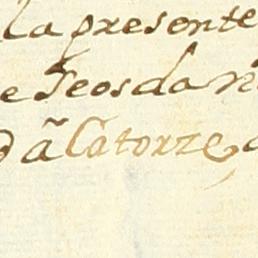 la presente
e Feos da
ã Catorze